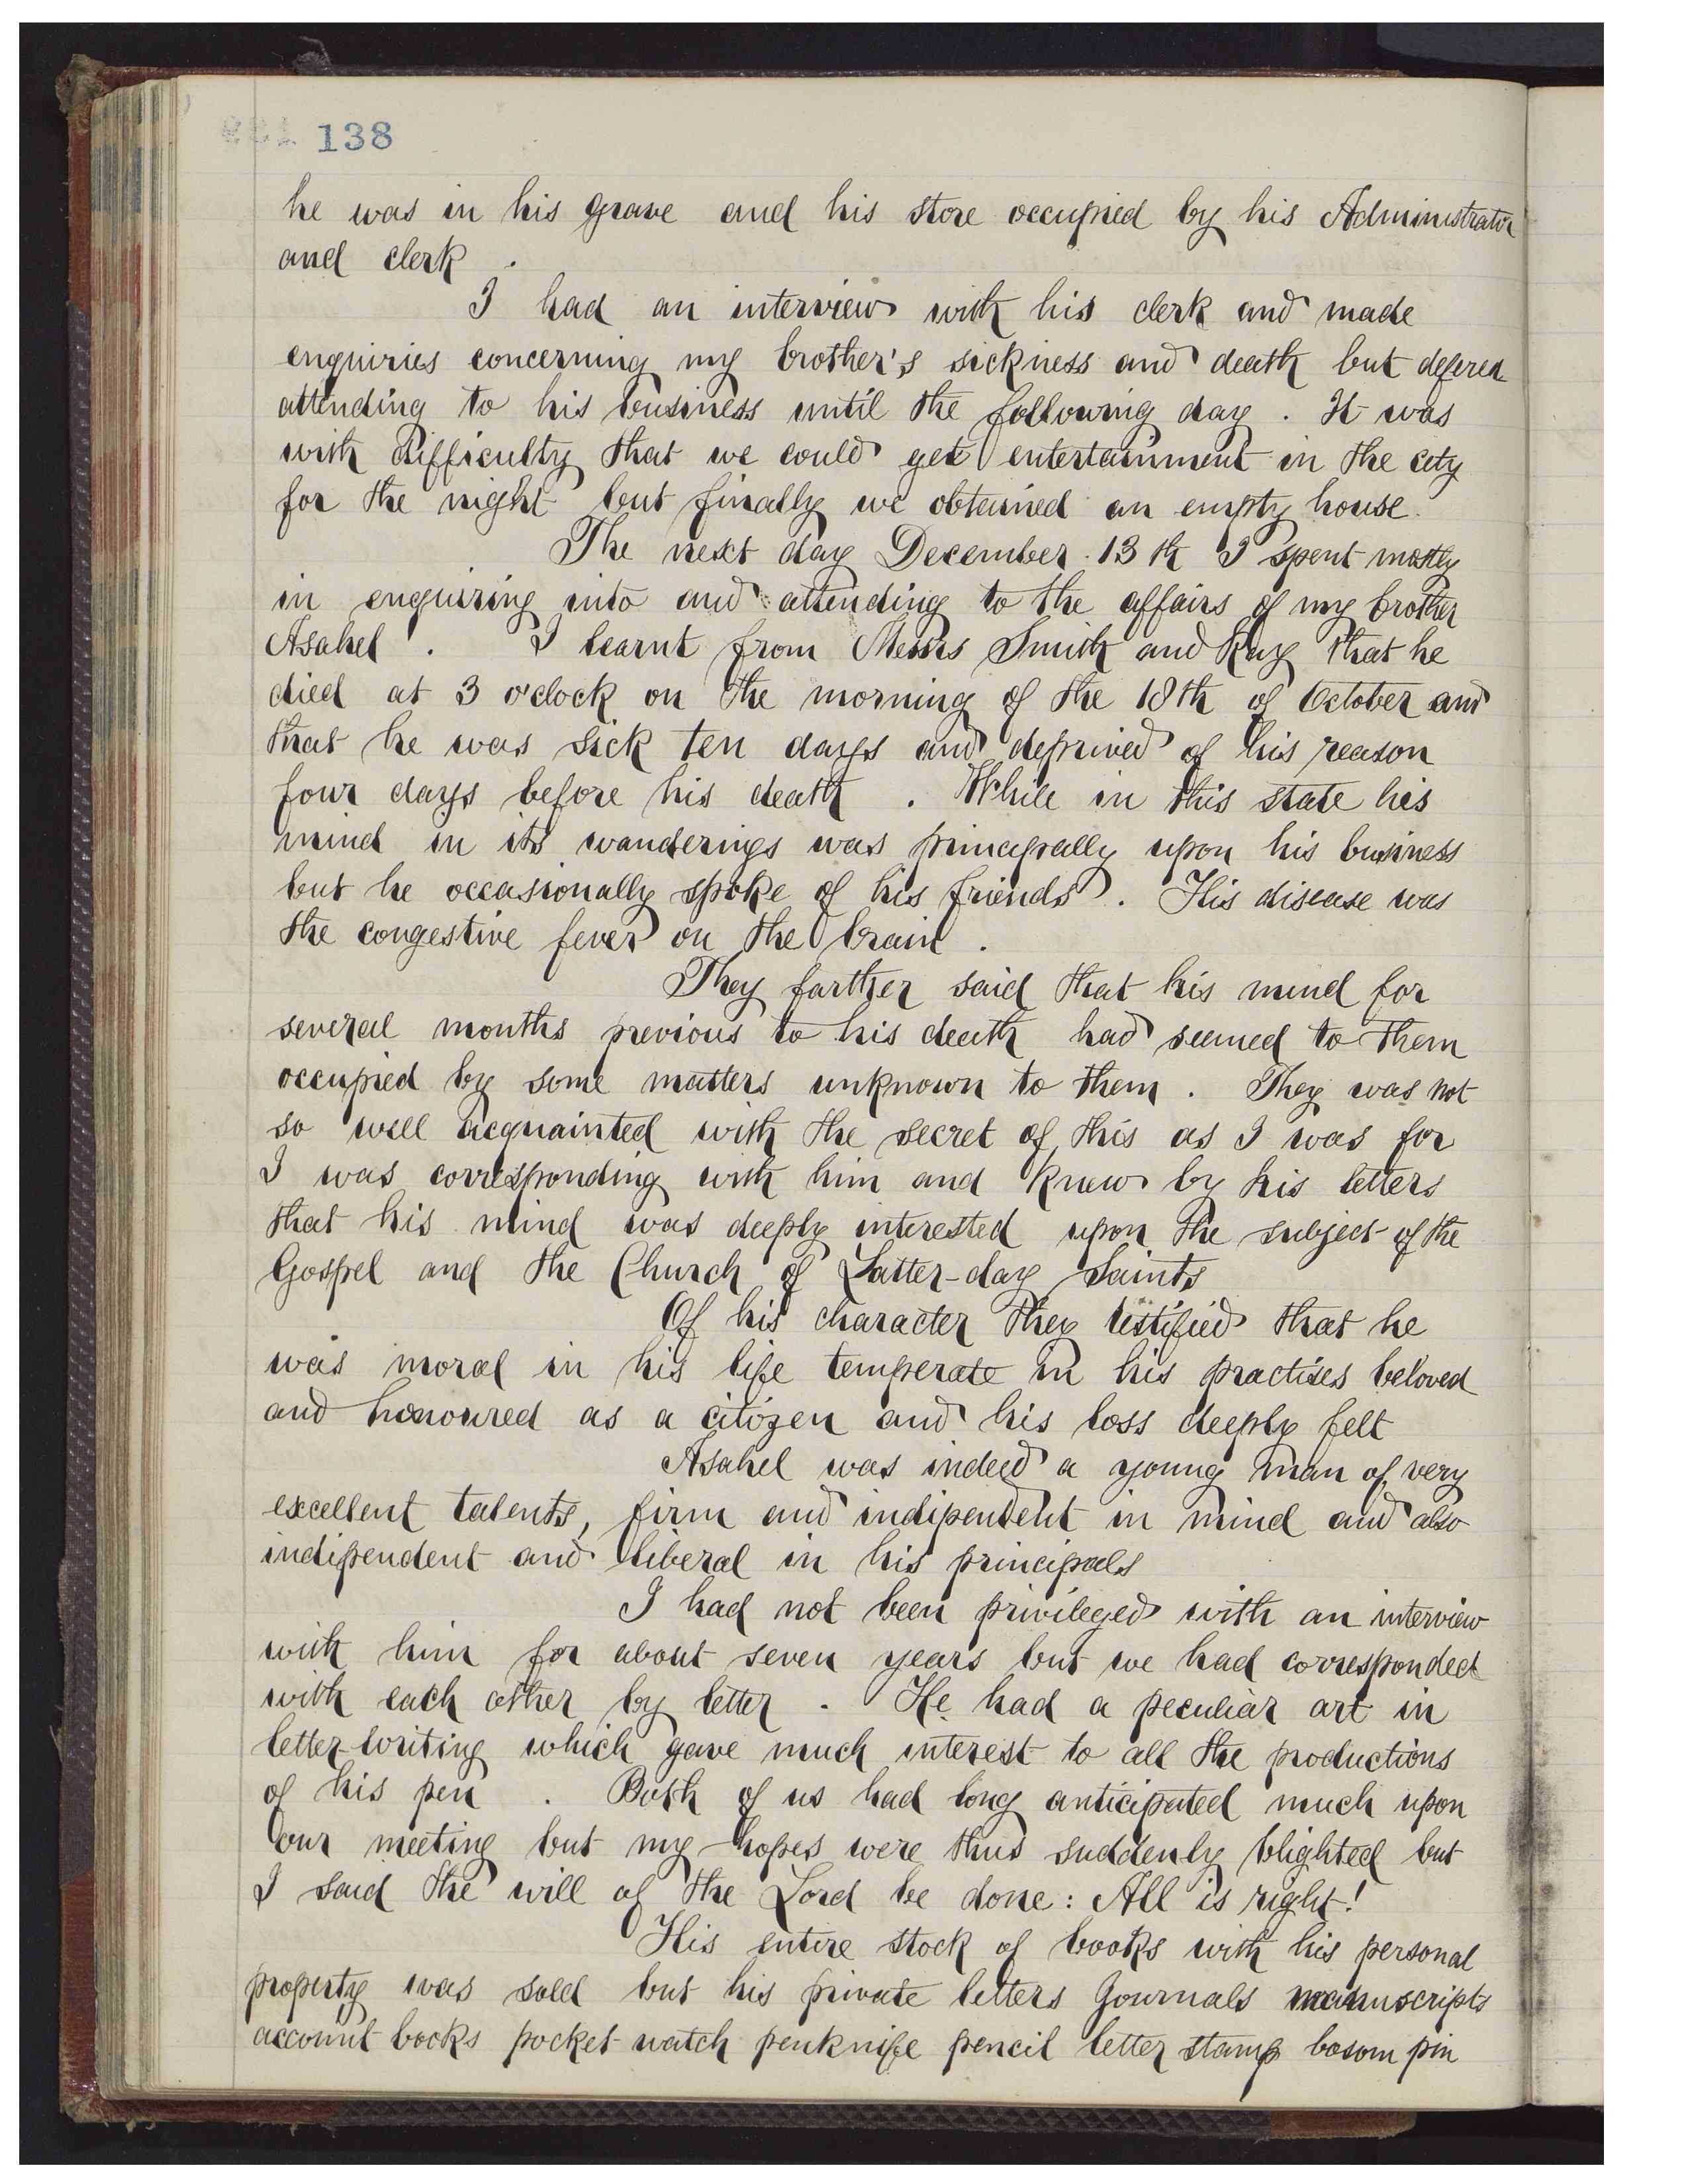 138
he was in his grave and his store occupied by his Administrator
and clerk .
I had an interview with his clerk and made
enquiries concerning my brother's sickness and death but defered
attending to his business until the following day . It was
with difficulty that we could get entertainment in the city
for the night but finally we obtained an empty house.
The next day December 13th I spent mostly
in enquiring into and attending to the affairs of my brother
Asahel . I learnt from Messrs Smith and Ray that he
died at 3 o'clock on the morning of the 18th of October and
that he was sick ten days and deprived of his reason
four days before his death . While in this state his
mind in its wanderings was principally upon his business
but he occasionally spoke of his friends . His disease was
the congestive fever on the brain .
They farther said that his mind for
several months previous to his death had seemed to them
occupied by some matters unknown to them . They was not
so well acquainted with the secret of this as I was for
I was corresponding with him and knew by his letters
that his mind was deeply interested upon the subject of the
Gospel and the Church of Latter-day Saints
Of his character they testified that he
was moral in his life temperate in his practises beloved
and honoured as a citizen and his loss deeply felt
Asahel was indeed a young man of very
excellent talents, firm and indipendent in mind and also
indipendent and liberal in his principals
I had not been privileged with an interview
with him for about seven years but we had corresponded
with each other by letter . He had a peculiar art in
letter-writing which gave much interest to all the productions
of his pen . Both of us had long anticipated much upon
our meeting but my hopes were thus suddenly blighted but
I said the will of the Lord be done: All is right!
His entire stock of books with his personal
property was sold but his private letters Journals manuscripts
account books pocket-watch penknife pencil letter stamp bosom pin